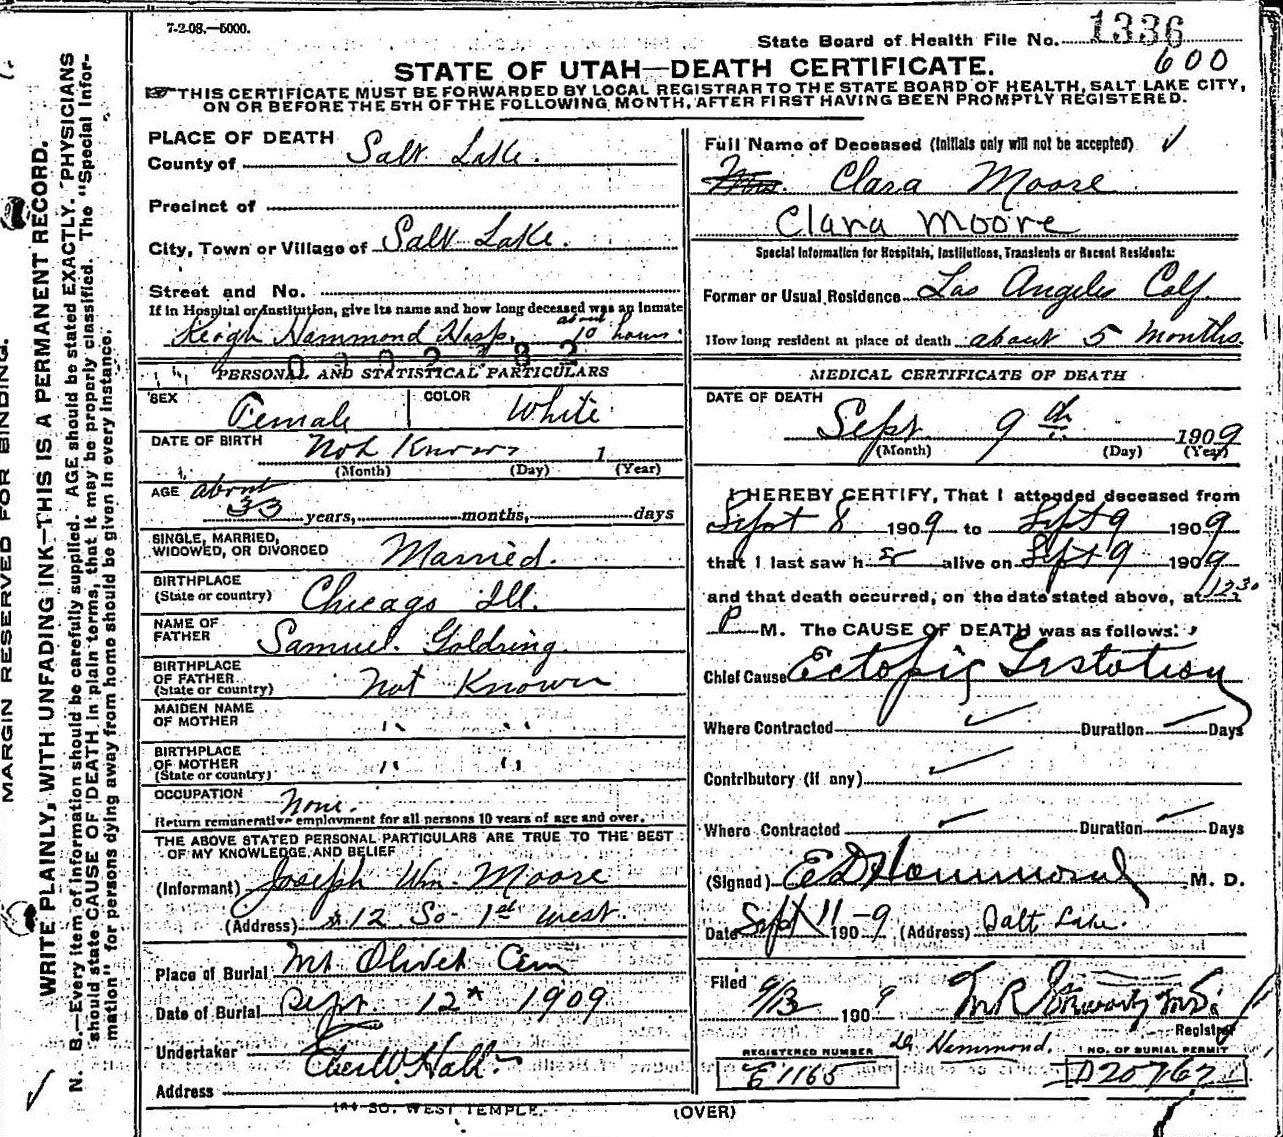 7-2-08.—5000.
State Board of Health File No. 1336
600
STATE OF UTAH—DEATH CERTIFICATE.
THIS CERTIFICATE MUST BE FORWARDED BY LOCAL REGISTRAR TO THE STATE BOARD OF HEALTH, SALT LAKE CITY,
ON OR BEFORE THE 5TH OF THE FOLLOWING MONTH, AFTER FIRST HAVING BEEN PROMPTLY REGISTERED.
MARGIN RESERVED FOR BINDING.
WRITE PLAINLY, WITH UNFADING INK—THIS IS A PERMANENT RECORD.
N. B.—Every item of information should be carefully supplied. AGE should be stated EXACTLY. PHYSICIANS
should state CAUSE OF DEATH in plain terms, that it may be properly classified. The "Special Infor-
mation" for persons dying away from home should be given in every instance.
PLACE OF DEATH
County of Salt Lake.
Precinct of
City, Town or Village of Salt Lake.
Street and No.
If in Hospital or Institution, give its name and how long deceased was an inmate
Keogh Hammond Hosp. about 10 hours.
PERSONAL AND STATISTICAL PARTICULARS
SEX Female COLOR White
DATE OF BIRTH Not Known 1
(Month) (Day) (Year)
AGE about
33 years, months, days
SINGLE, MARRIED,
WIDOWED, OR DIVORCED Married.
BIRTHPLACE
(State or country) Chicago Ill.
NAME OF
FATHER Samuel Goldring.
BIRTHPLACE
OF FATHER
(State or country) Not Known
MAIDEN NAME
OF MOTHER " "
BIRTHPLACE
OF MOTHER
(State or country) " "
OCCUPATION None.
Return remunerative employment for all persons 10 years of age and over.
THE ABOVE STATED PERSONAL PARTICULARS ARE TRUE TO THE BEST
OF MY KNOWLEDGE AND BELIEF
(Informant) Joseph Wm. Moore
(Address) #12 So. 1st West.
Place of Burial Mt Olivet Cem
Date of Burial Sept. 12th 1909
Undertaker Eber W. Hall.
Address
SO. WEST TEMPLE.
Full Name of Deceased (Initials only will not be accepted)
Mrs. Clara Moore
Clara Moore
Special Information for Hospitals, Institutions, Transients or Recent Residents:
Former or Usual Residence Los Angeles Calf.
How long resident at place of death about 5 months.
MEDICAL CERTIFICATE OF DEATH
DATE OF DEATH
Sept. 9th 1909
(Month) (Day) (Year)
I HEREBY CERTIFY, That I attended deceased from
Sept 8 1909 to Sept 9 1909
that I last saw her alive on Sept 9 1909
and that death occurred, on the date stated above, at 12 30
P M. The CAUSE OF DEATH was as follows:
Chief Cause Ectopic Gestation
Where Contracted Duration Days
Contributory (if any)
Where Contracted Duration Days
(Signed) E D Hammond M. D.
Date Sept 11 1909 (Address) Salt Lake.
Filed 9/13 1909
Registrar
Dr Hammond.
REGISTERED NUMBER E1165
NO. OF BURIAL PERMIT D20767
(OVER)